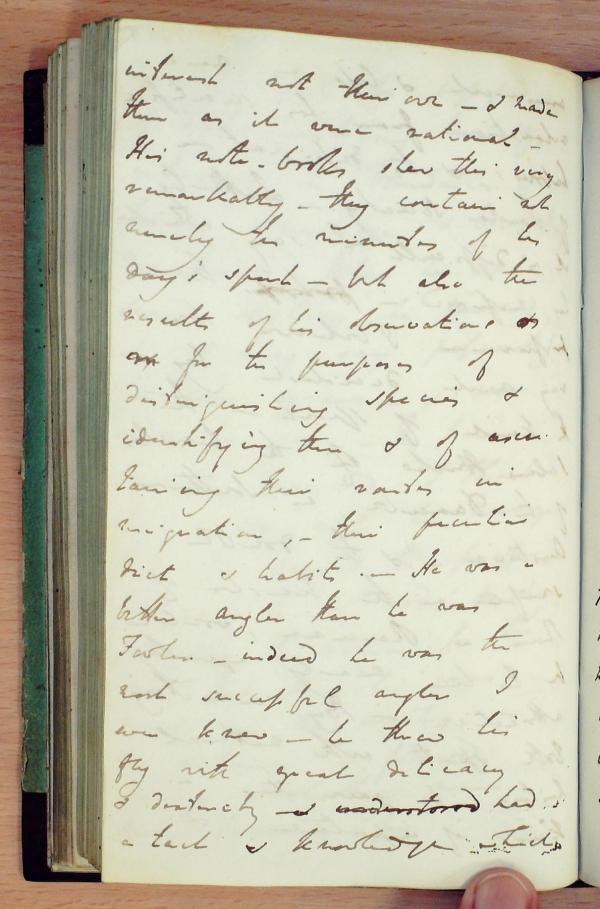 interest not their own - & made
them as it were rational -
His note-books shew this very
remarkably - they contain not
merely the minutes of his
day's sport - but also the
results of his observations
for the purposes of
distinguishing species &
identifying them & of ascer
taining their routes in
migration, - their peculiar
diet & habits. - He was a
better angler than he was
Fowler - indeed he was the
most successful angler I
ever knew - he threw his
fly with great delicacy
& dexterity - & understood had
a tact & knowledge which